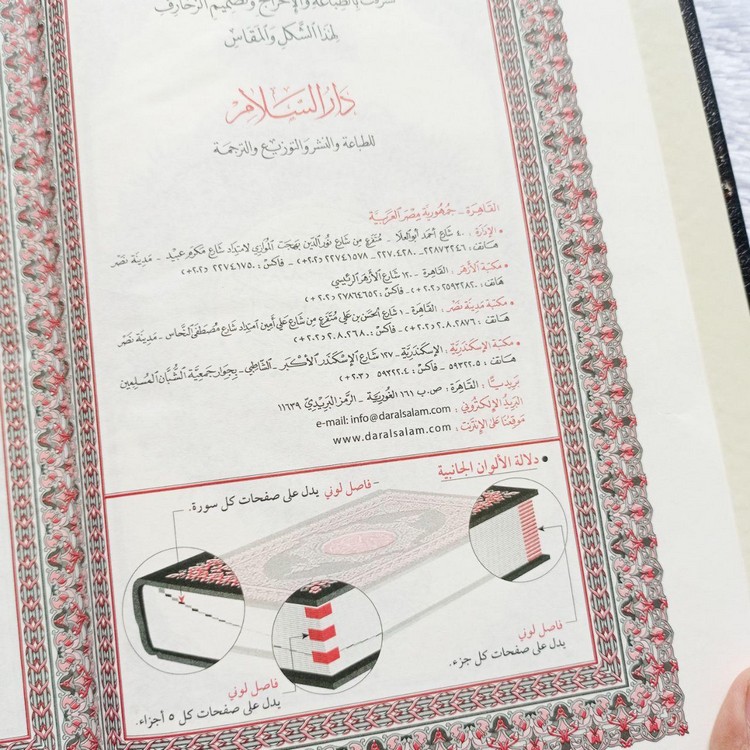 شرفت بالطباعة والإخراج وتصميم الزخارف
لهذا الشكل والمقاس
دار السلام
للطباعة والنشر والتوزيع والترجمة
القاهرة - جمهورية مصر العربية
• الإدارة : ٤٠ شارع أحمد أبو العلا - متفرع من شارع نور الدين بهجت الموازي لامتداد شارع مكرم عبيد - مدينة نصر
هاتف : ٢٢٨٧٣٢٤٦ - ٢٢٧٠٤٢٨٠ - ٢٢٧٤١٥٧٨ (٢٠٢+) - فاكس : ٢٢٧٤١٧٥٠ (٢٠٢+)
• مكتبة الأزهر : القاهرة - ١٢٠ شارع الأزهر الرئيسي
هاتف : ٢٥٩٣٢٨٢٠ (٢٠٢+) - فاكس : ٢٧٨٦٤٦٥٢ (٢٠٢+)
• مكتبة مدينة نصر : القاهرة - ١ شارع الحسن بن علي متفرع من شارع علي أمين امتداد شارع مصطفى النحاس - مدينة نصر
هاتف : ٢٠٨٠٢٨٧٦ (٢٠٢+) - فاكس : ٢٠٨٠٢٦٨٠ (٢٠٢+)
• مكتبة الإسكندرية : الإسكندرية - ١٢٧ شارع الإسكندر الأكبر - الشاطبي - بجوار جمعية الشبان المسلمين
هاتف : ٥٩٣٢٢٠٥ - فاكس : ٥٩٣٢٢٠٤ (٢٠٣+)
بريديًّا : القاهرة : ص.ب ١٦١ الغورية - الرمز البريدي ١١٦٣٩
البريد الإلكتروني : e-mail: info@daralsalam.com
موقعنا على الإنترنت : www.daralsalam.com
• دلالة الألوان الجانبية
فاصل لوني يدل على صفحات كل سورة.
فاصل لوني
يدل على صفحات كل جزء.
فاصل لوني
يدل على صفحات كل ٥ أجزاء.